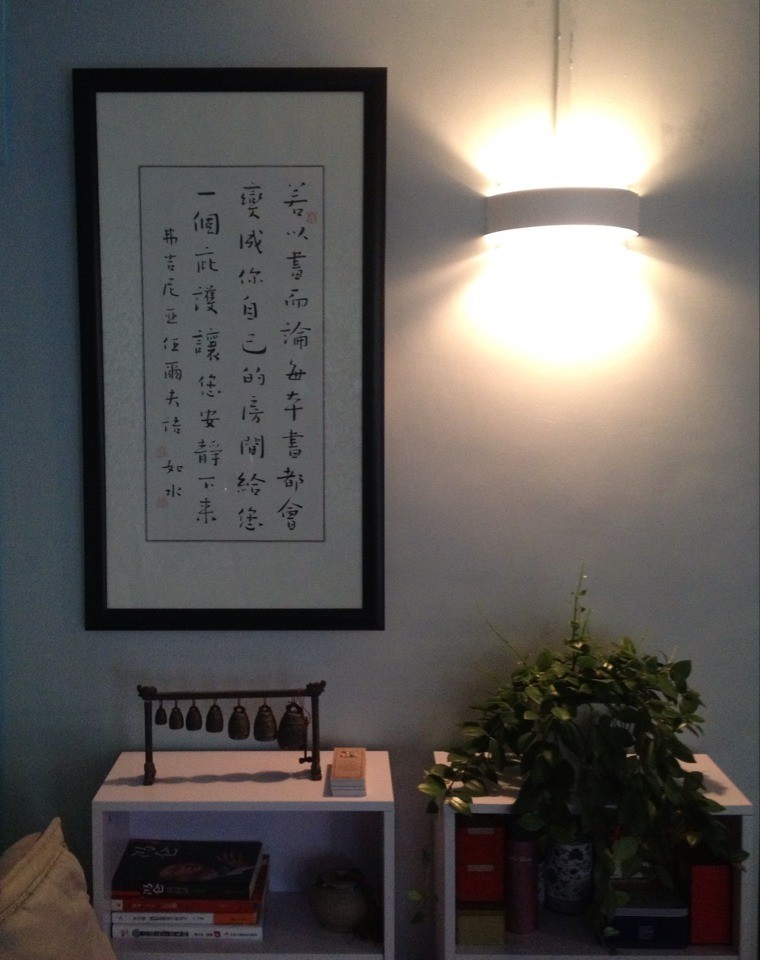 若以書而論每本書都會
變成你自己的房間給您
一個庇護讓您安靜下来
弗吉尼亚伍爾夫語 如水